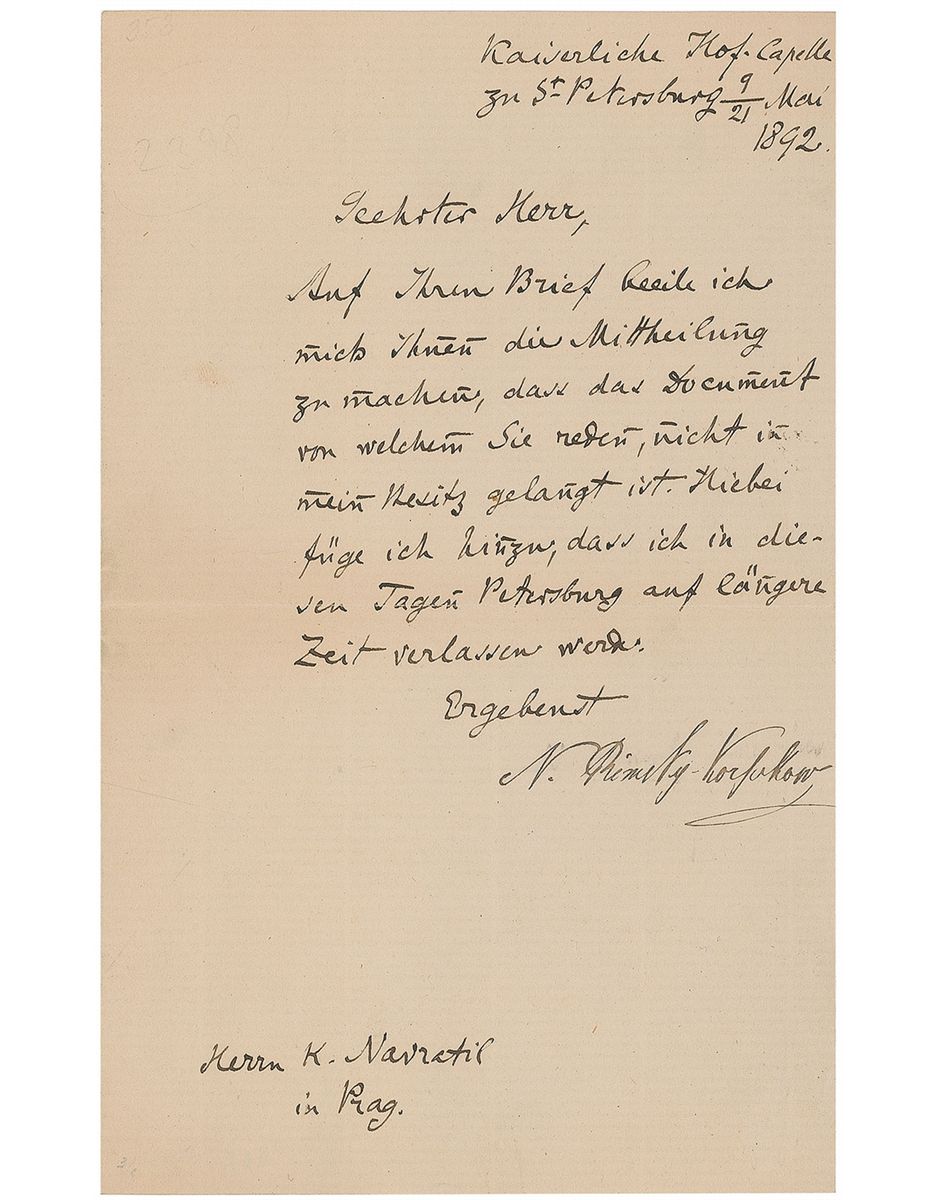 353
Kaiserliche Hof-Capelle
zu St. Petersburg 9/21 Mai
1892.
Geehrter Herr,
Auf Ihren Brief beeile ich
mich Ihnen die Mittheilung
zu machen, dass das Document
von welchem Sie reden, nicht in
mein Besitz gelangt ist. Hiebei
füge ich hinzu, dass ich in die-
sen Tagen Petersburg auf längere
Zeit verlassen werde.
Ergebenst
N. Rimsky-Korsakow
Herrn K. Navratil
in Prag.